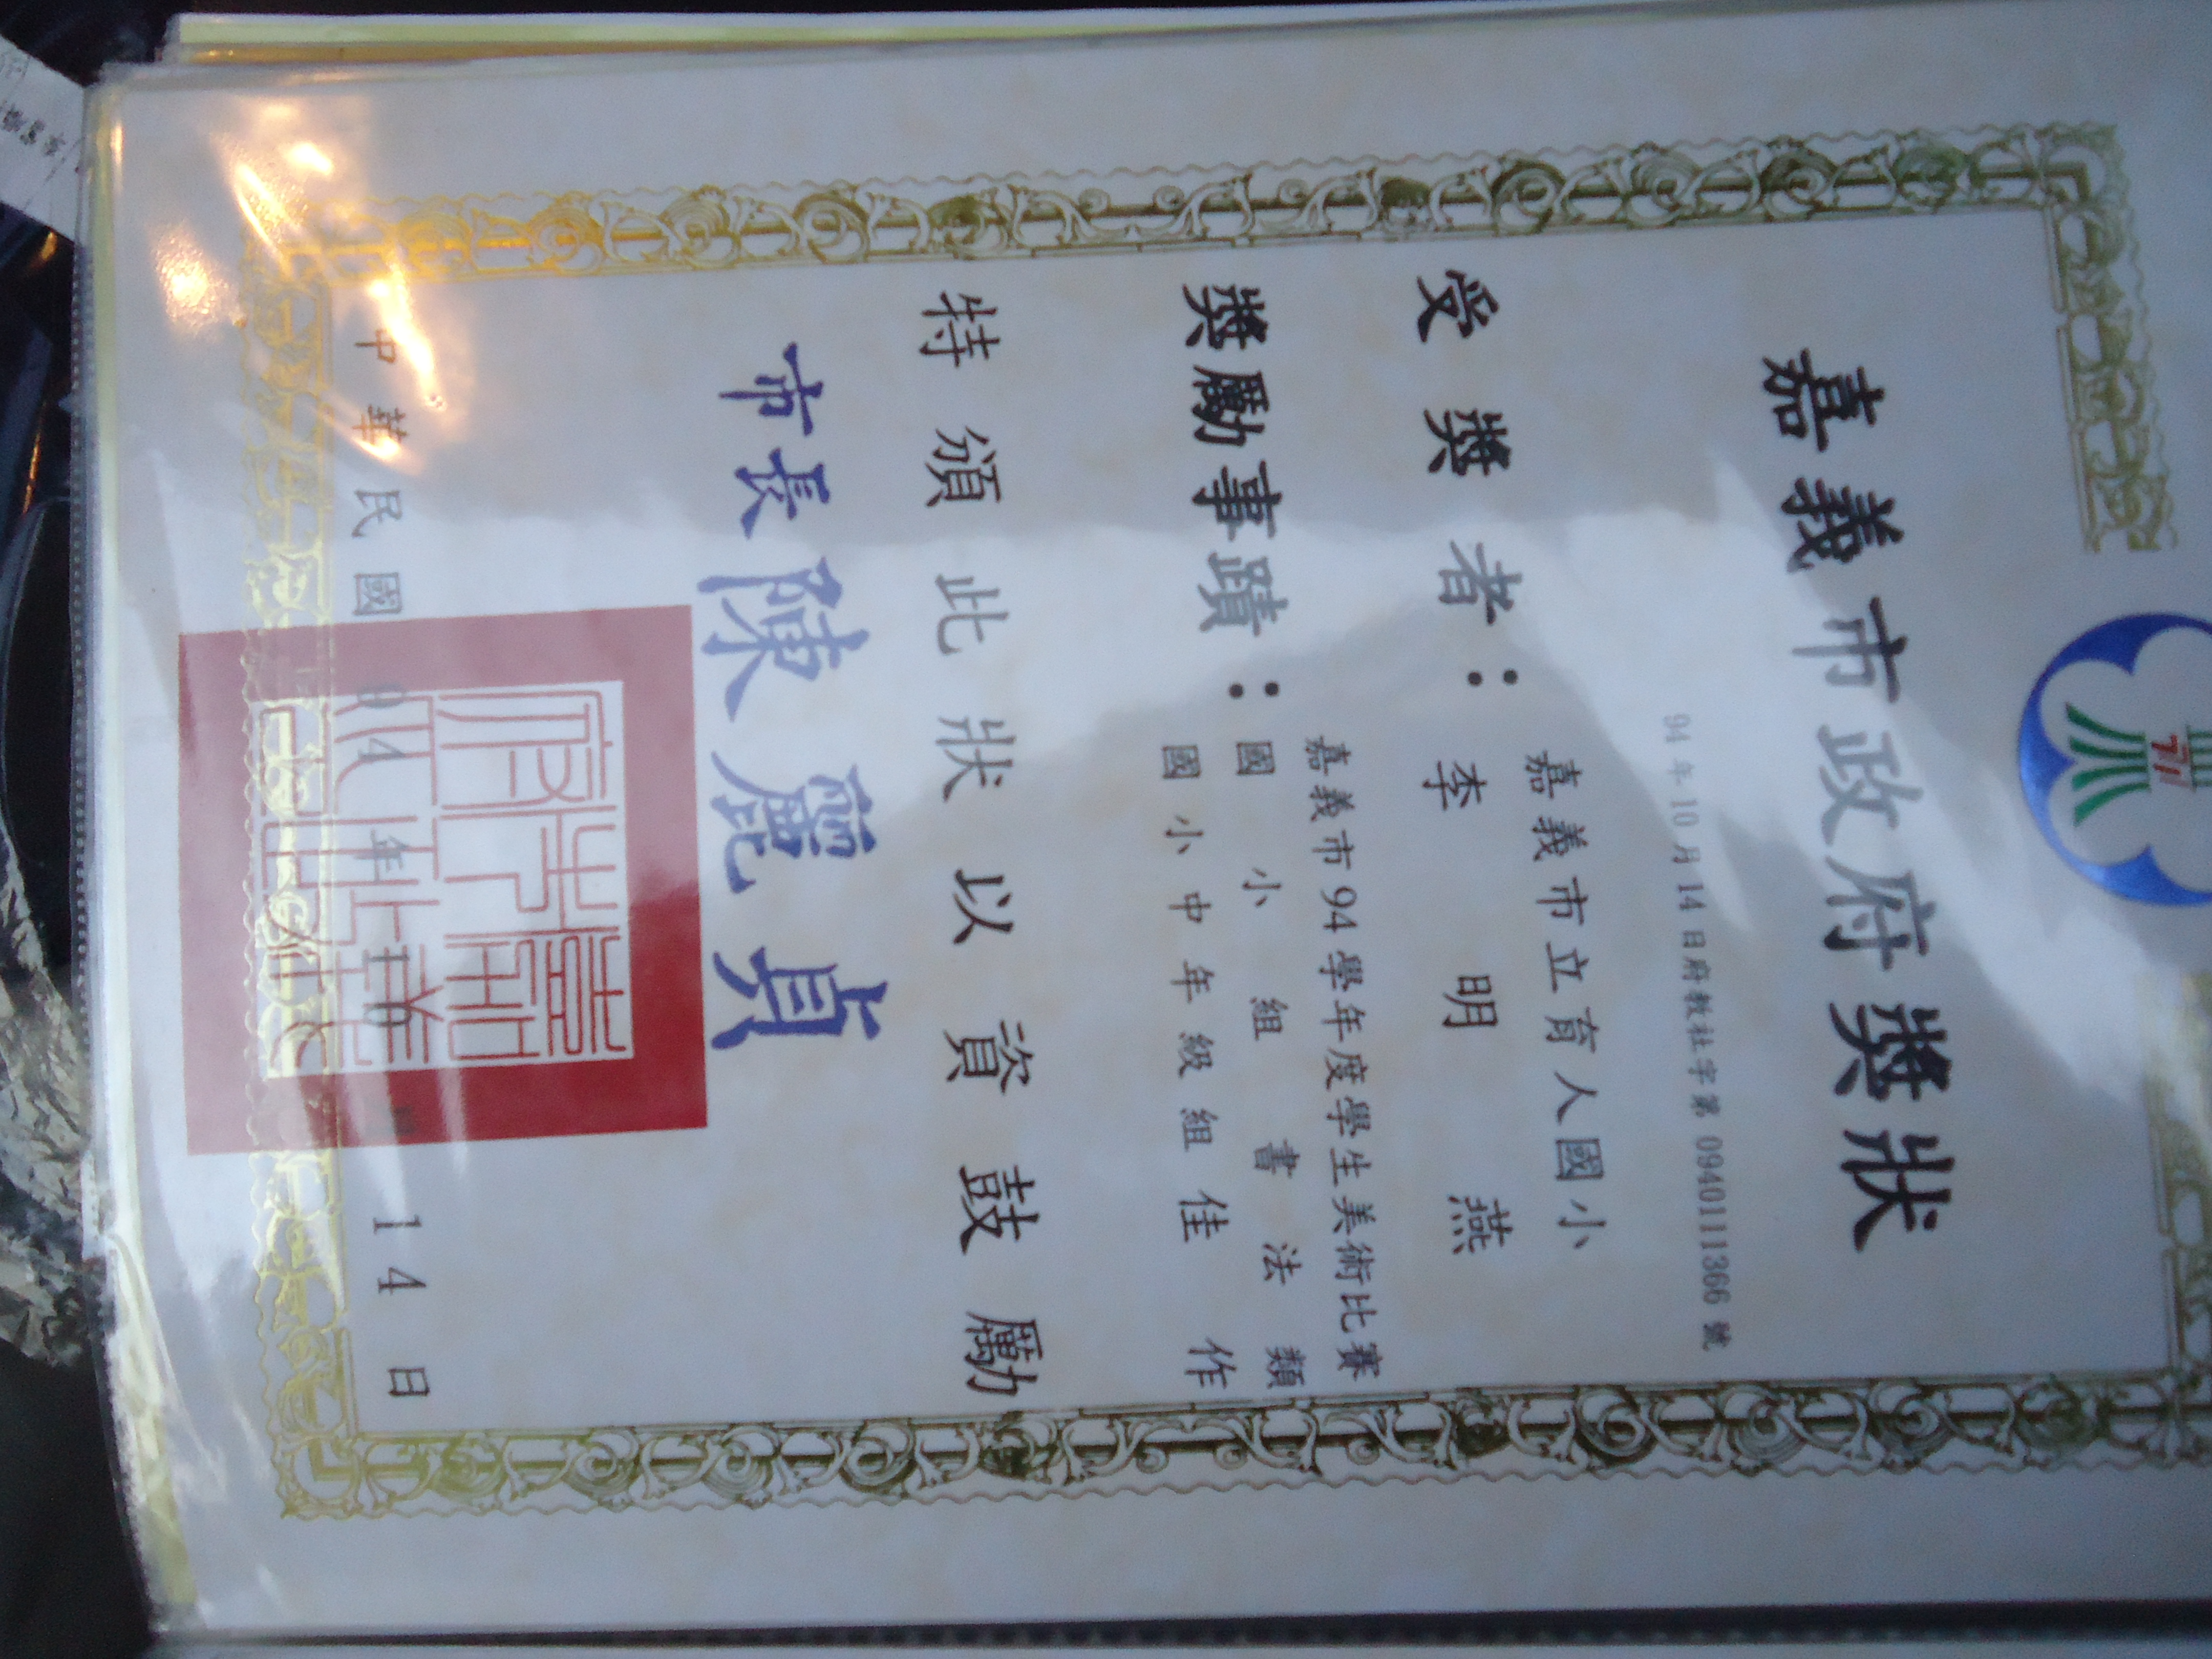 嘉義市政府獎狀
94年10月14日府教社字第0940111366號
嘉義市立育人國小
受獎者：李明燕
嘉義市94學年度學生美術比賽
獎勵事蹟：國小組書法類
國小中年級組佳作
特頒此狀以資鼓勵
市長陳麗貞
中華民國94年10月14日